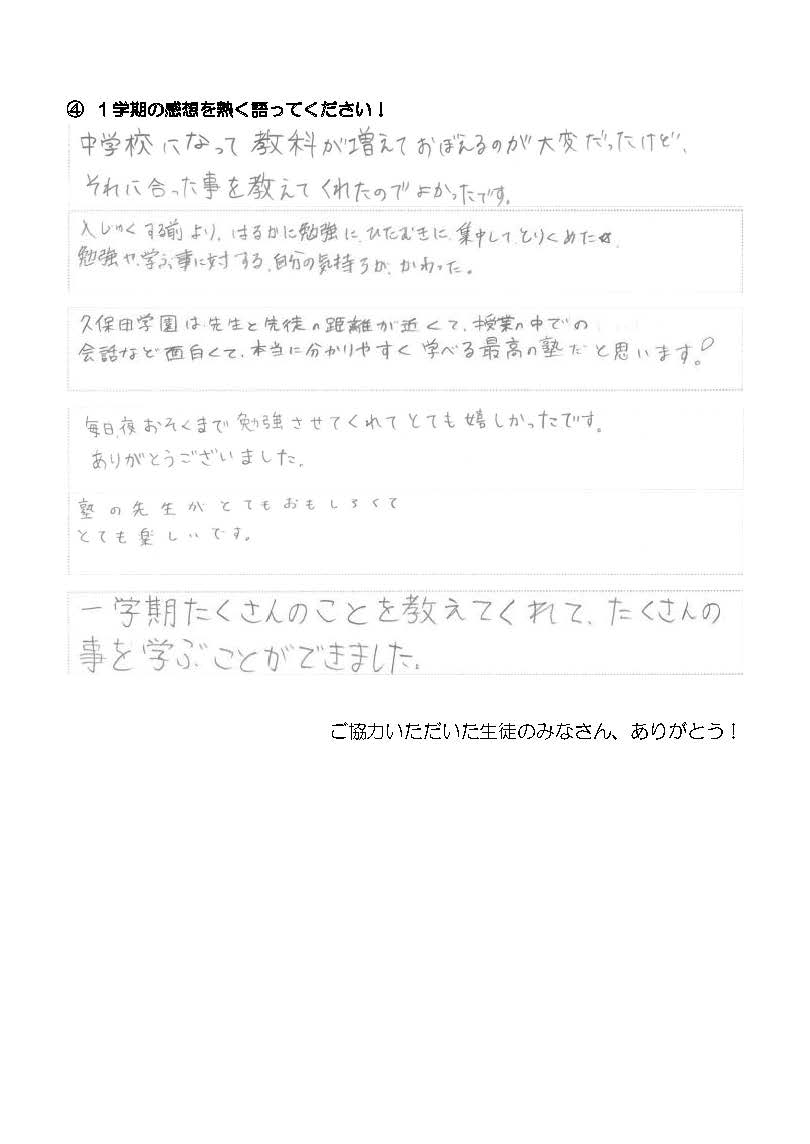 ④ １学期の感想を熱く語ってください！
中学校になって教科が増えておぼえるのが大変だったけど、
それに合った事を教えてくれたのでよかったです。
入じゅくする前より、はるかに勉強に、ひたむきに、集中して、とりくめた☆、
勉強や、学ぶ事に対する、自分の気持ちが、かわった。
久保田学園は、先生と先徒の距離が近くて、授業の中での
会話など面白くて、本当に分かりやすく学べる最高の塾だと思います。
毎日、夜おそくまで勉強させてくれてとても嬉しかったです。
ありがとうございました。
塾の先生がとてもおもしろくて
とても楽しいです。
一学期たくさんのことを教えてくれて、たくさんの
事を学ぶことができました。
ご協力いただいた生徒のみなさん、ありがとう！